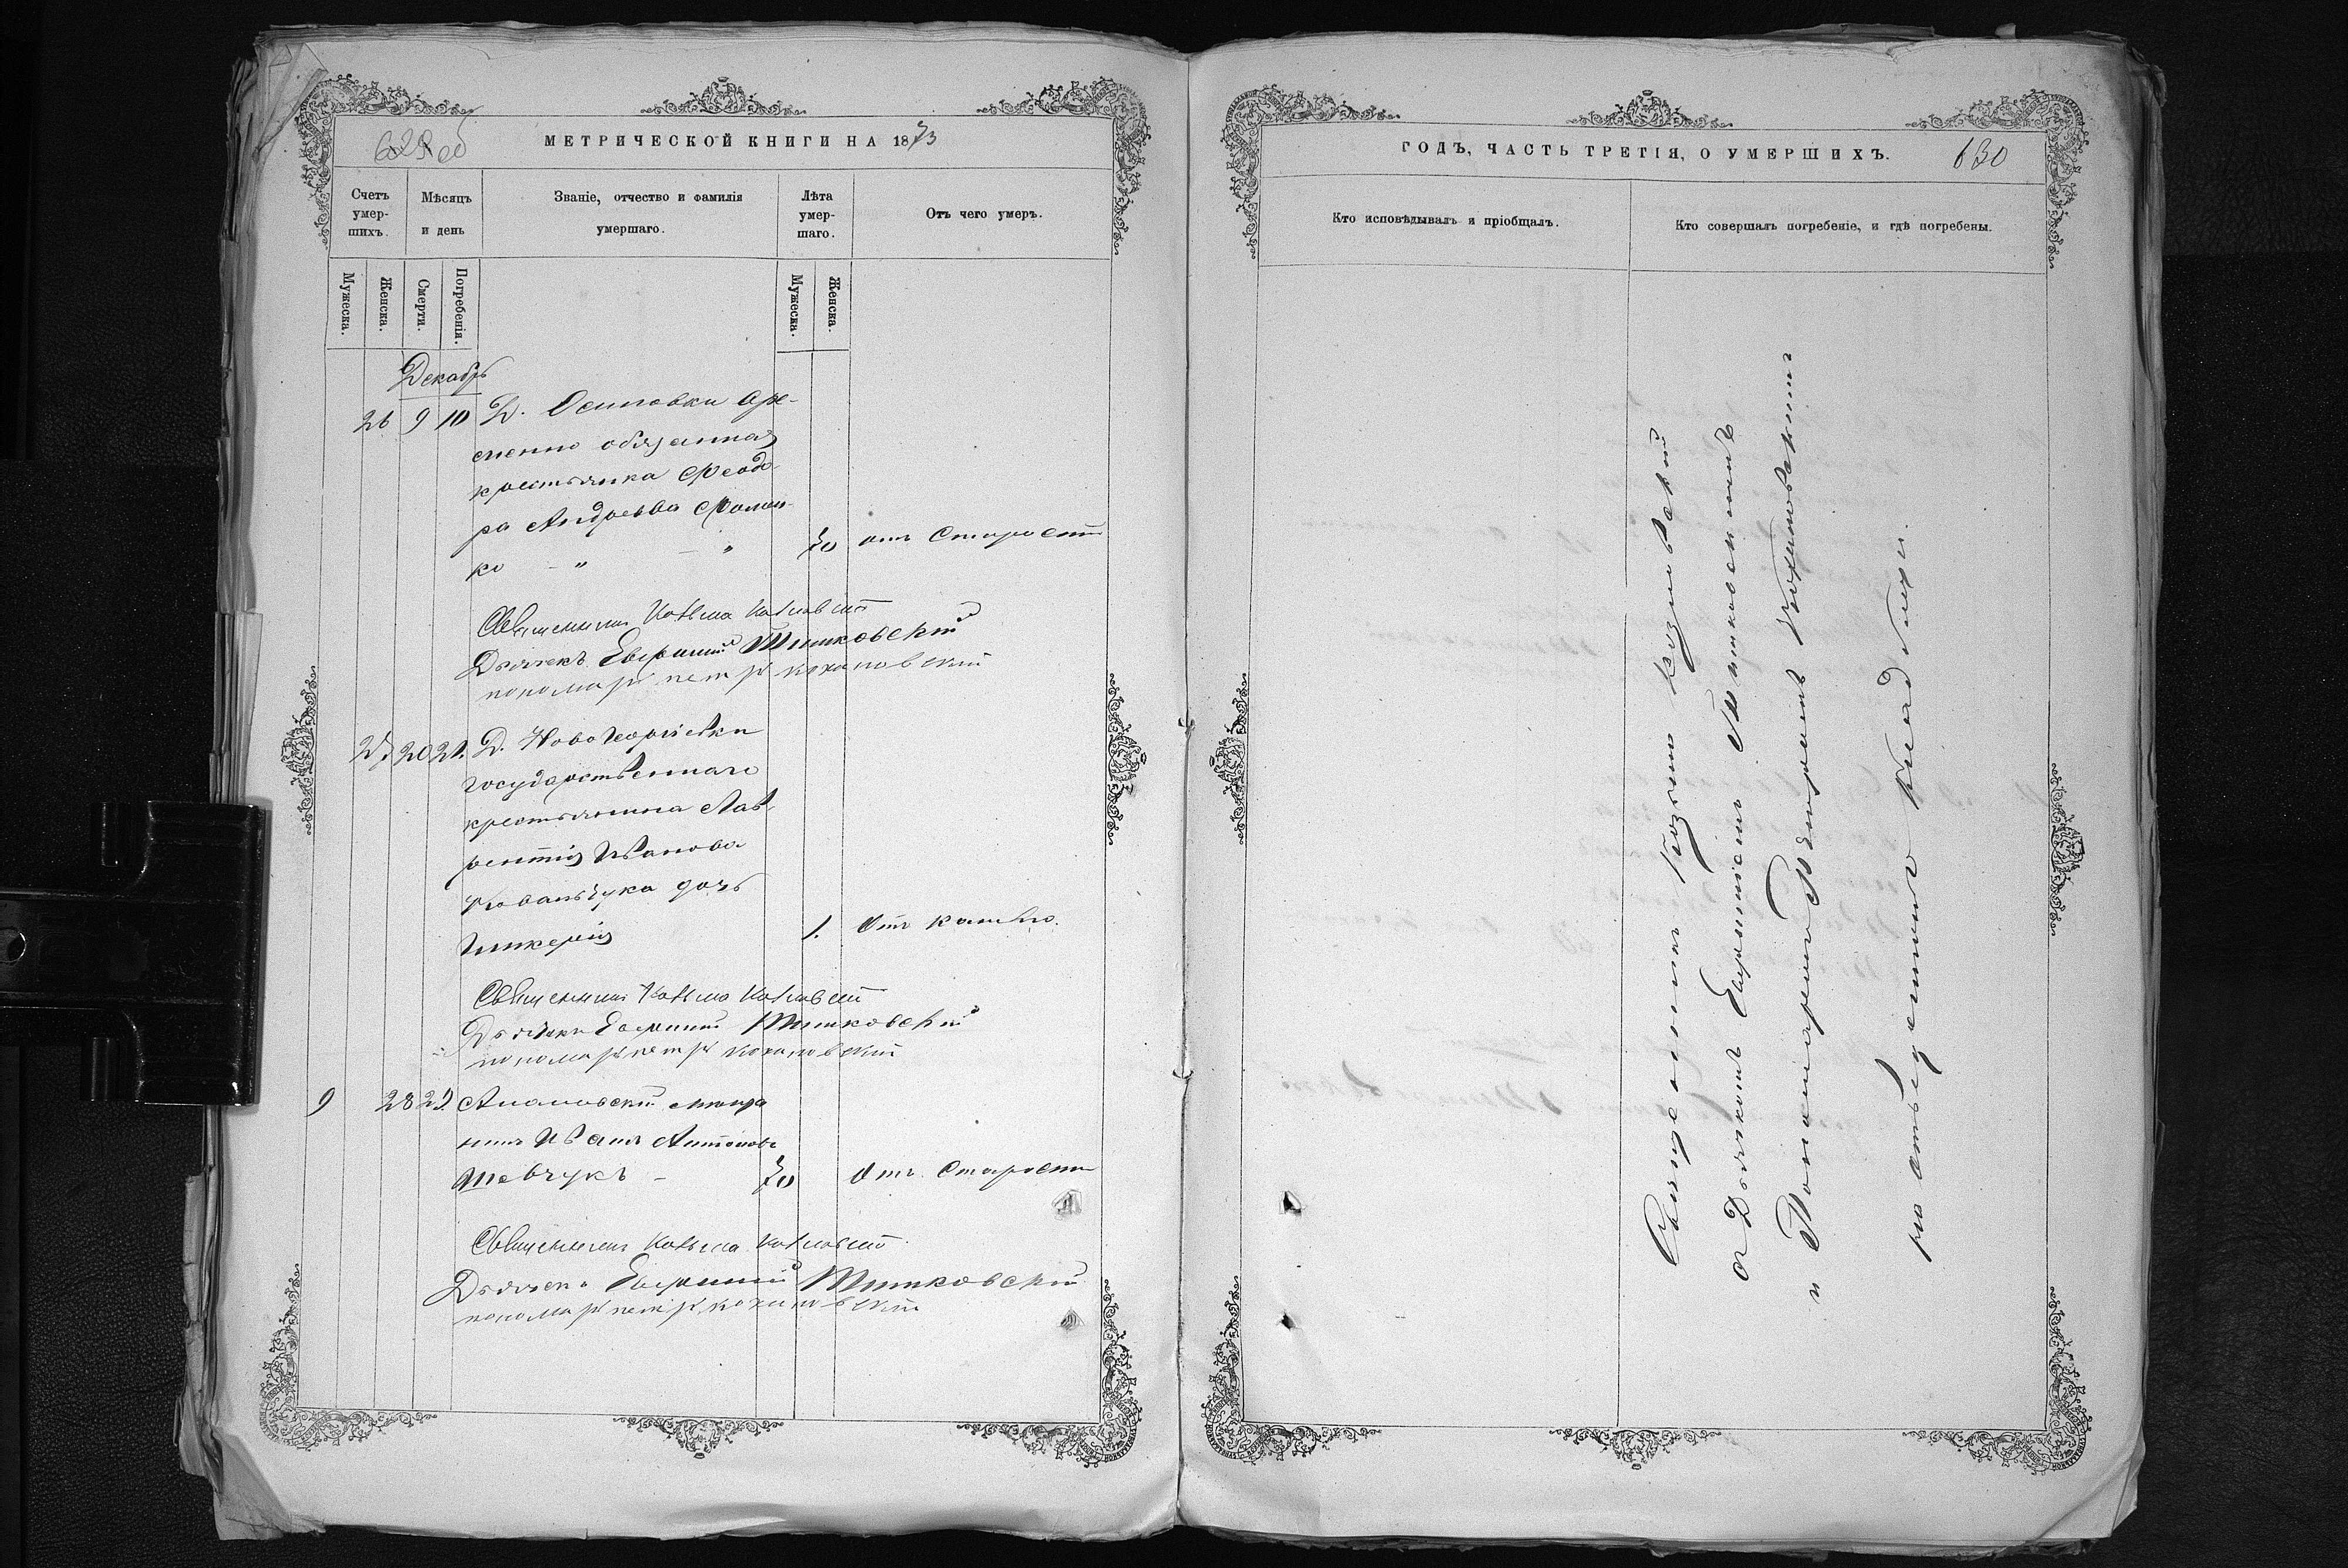 629 об
МЕТРИЧЕСКОЙ КНИГИ НА 1873
Счетъ умер-шихъ.
Мѣсяцъ и день
Званіе, отчество и фамилія умершаго.
Лѣта умер-шаго.
Отъ чего умеръ.
Мужеска.
Женска.
Смерти.
Погребенія.
Мужеска.
Женска.
Декабрь
26 9 10 Д. Осиповки вре-
менно обязанная
крестьянка Феодо-
ра Андреева Фомен-
ко - " - " 70 отъ Старости
Священникъ Козьма Козловскій
Дьячекъ Евфимій Тимковскій
пономарь петръ кохановскій
27 20 21. Д. Новогеоргіевки
государственнаго
крестьянина Лав-
рентія Иванова
Ковальчука дочь
Гликерія 1. Отъ кашлю.
Священникъ Козьма Козловскій
Дьячекъ Евфимій Тимковскій
пономарь петръ кохановскій
9 28 29. Ананьевскій мѣща
нинъ Иванъ Антоновъ
Шевчукъ - 70 Отъ Старости
Священникъ Козьма Козловскій
Дьячекъ Евфимій Тимковскій
пономарь петръ кохановскій
ГОДЪ, ЧАСТЬ ТРЕТІЯ, О УМЕРШИХЪ.
630
Кто исповѣдывалъ и пріобщалъ.
Кто совершалъ погребеніе, и гдѣ погребены.
Священникъ Козьма Козловскій
съ Дьячкомъ Евфиміемъ Тимковскимъ
и Пономаремъ Петромъ Кохановскимъ
на отведенномъ кладбищѣ.